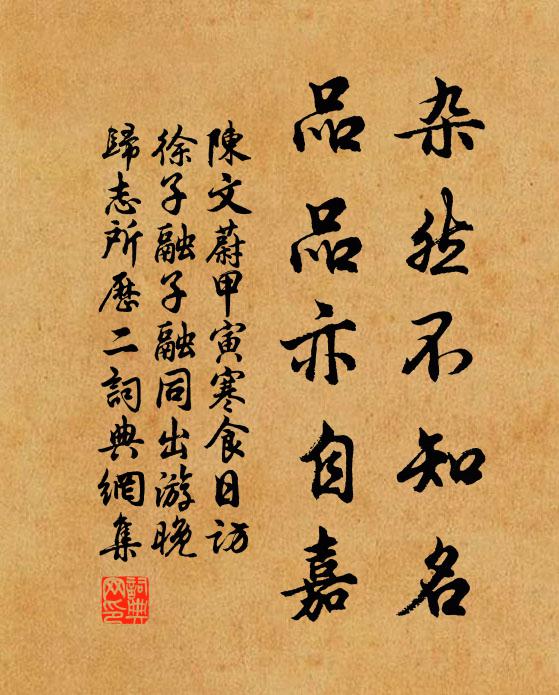 杂然不知名
品品亦自嘉
陳文蔚甲寅寒食日訪
徐子融子融同出游晚
歸志所歷二詞典網集
詞典网印